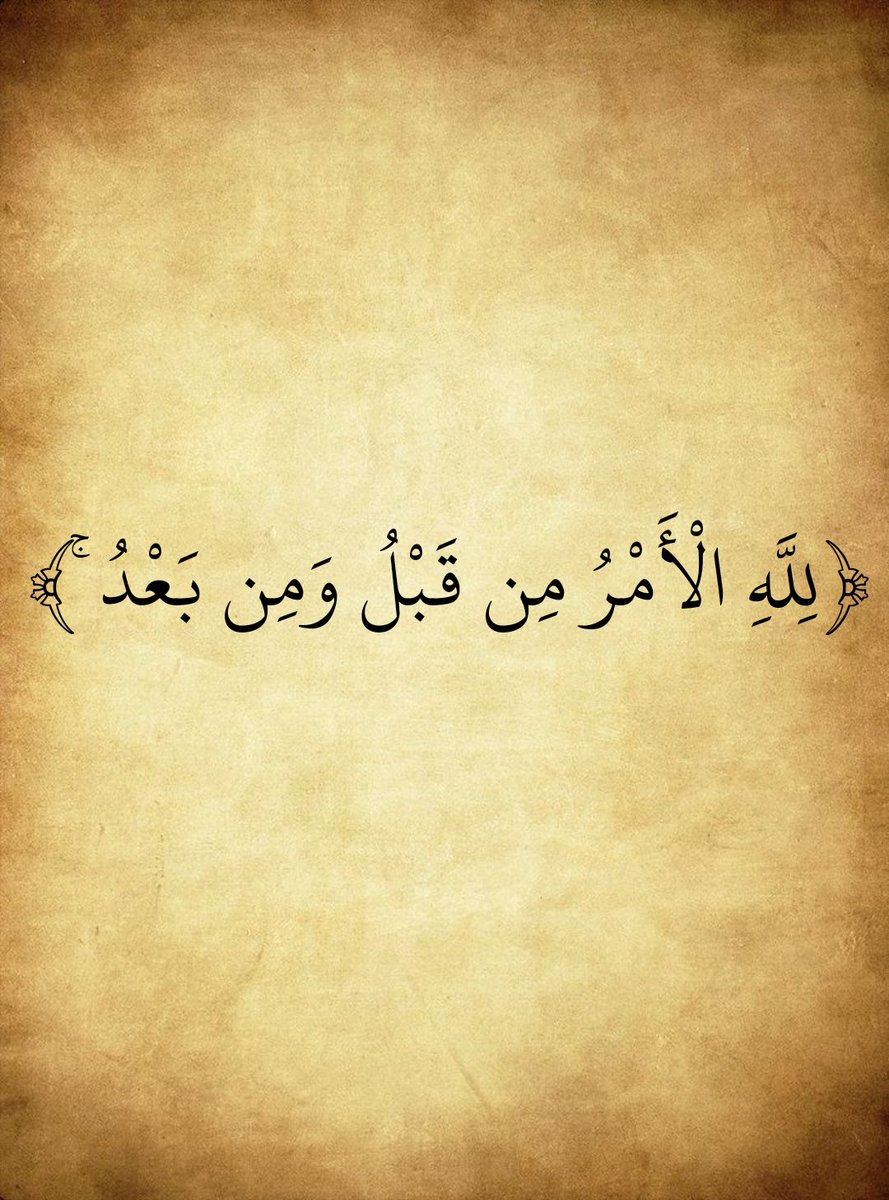 ﴿لِلَّهِ الْأَمْرُ مِن قَبْلُ وَمِن بَعْدُ ۚ﴾